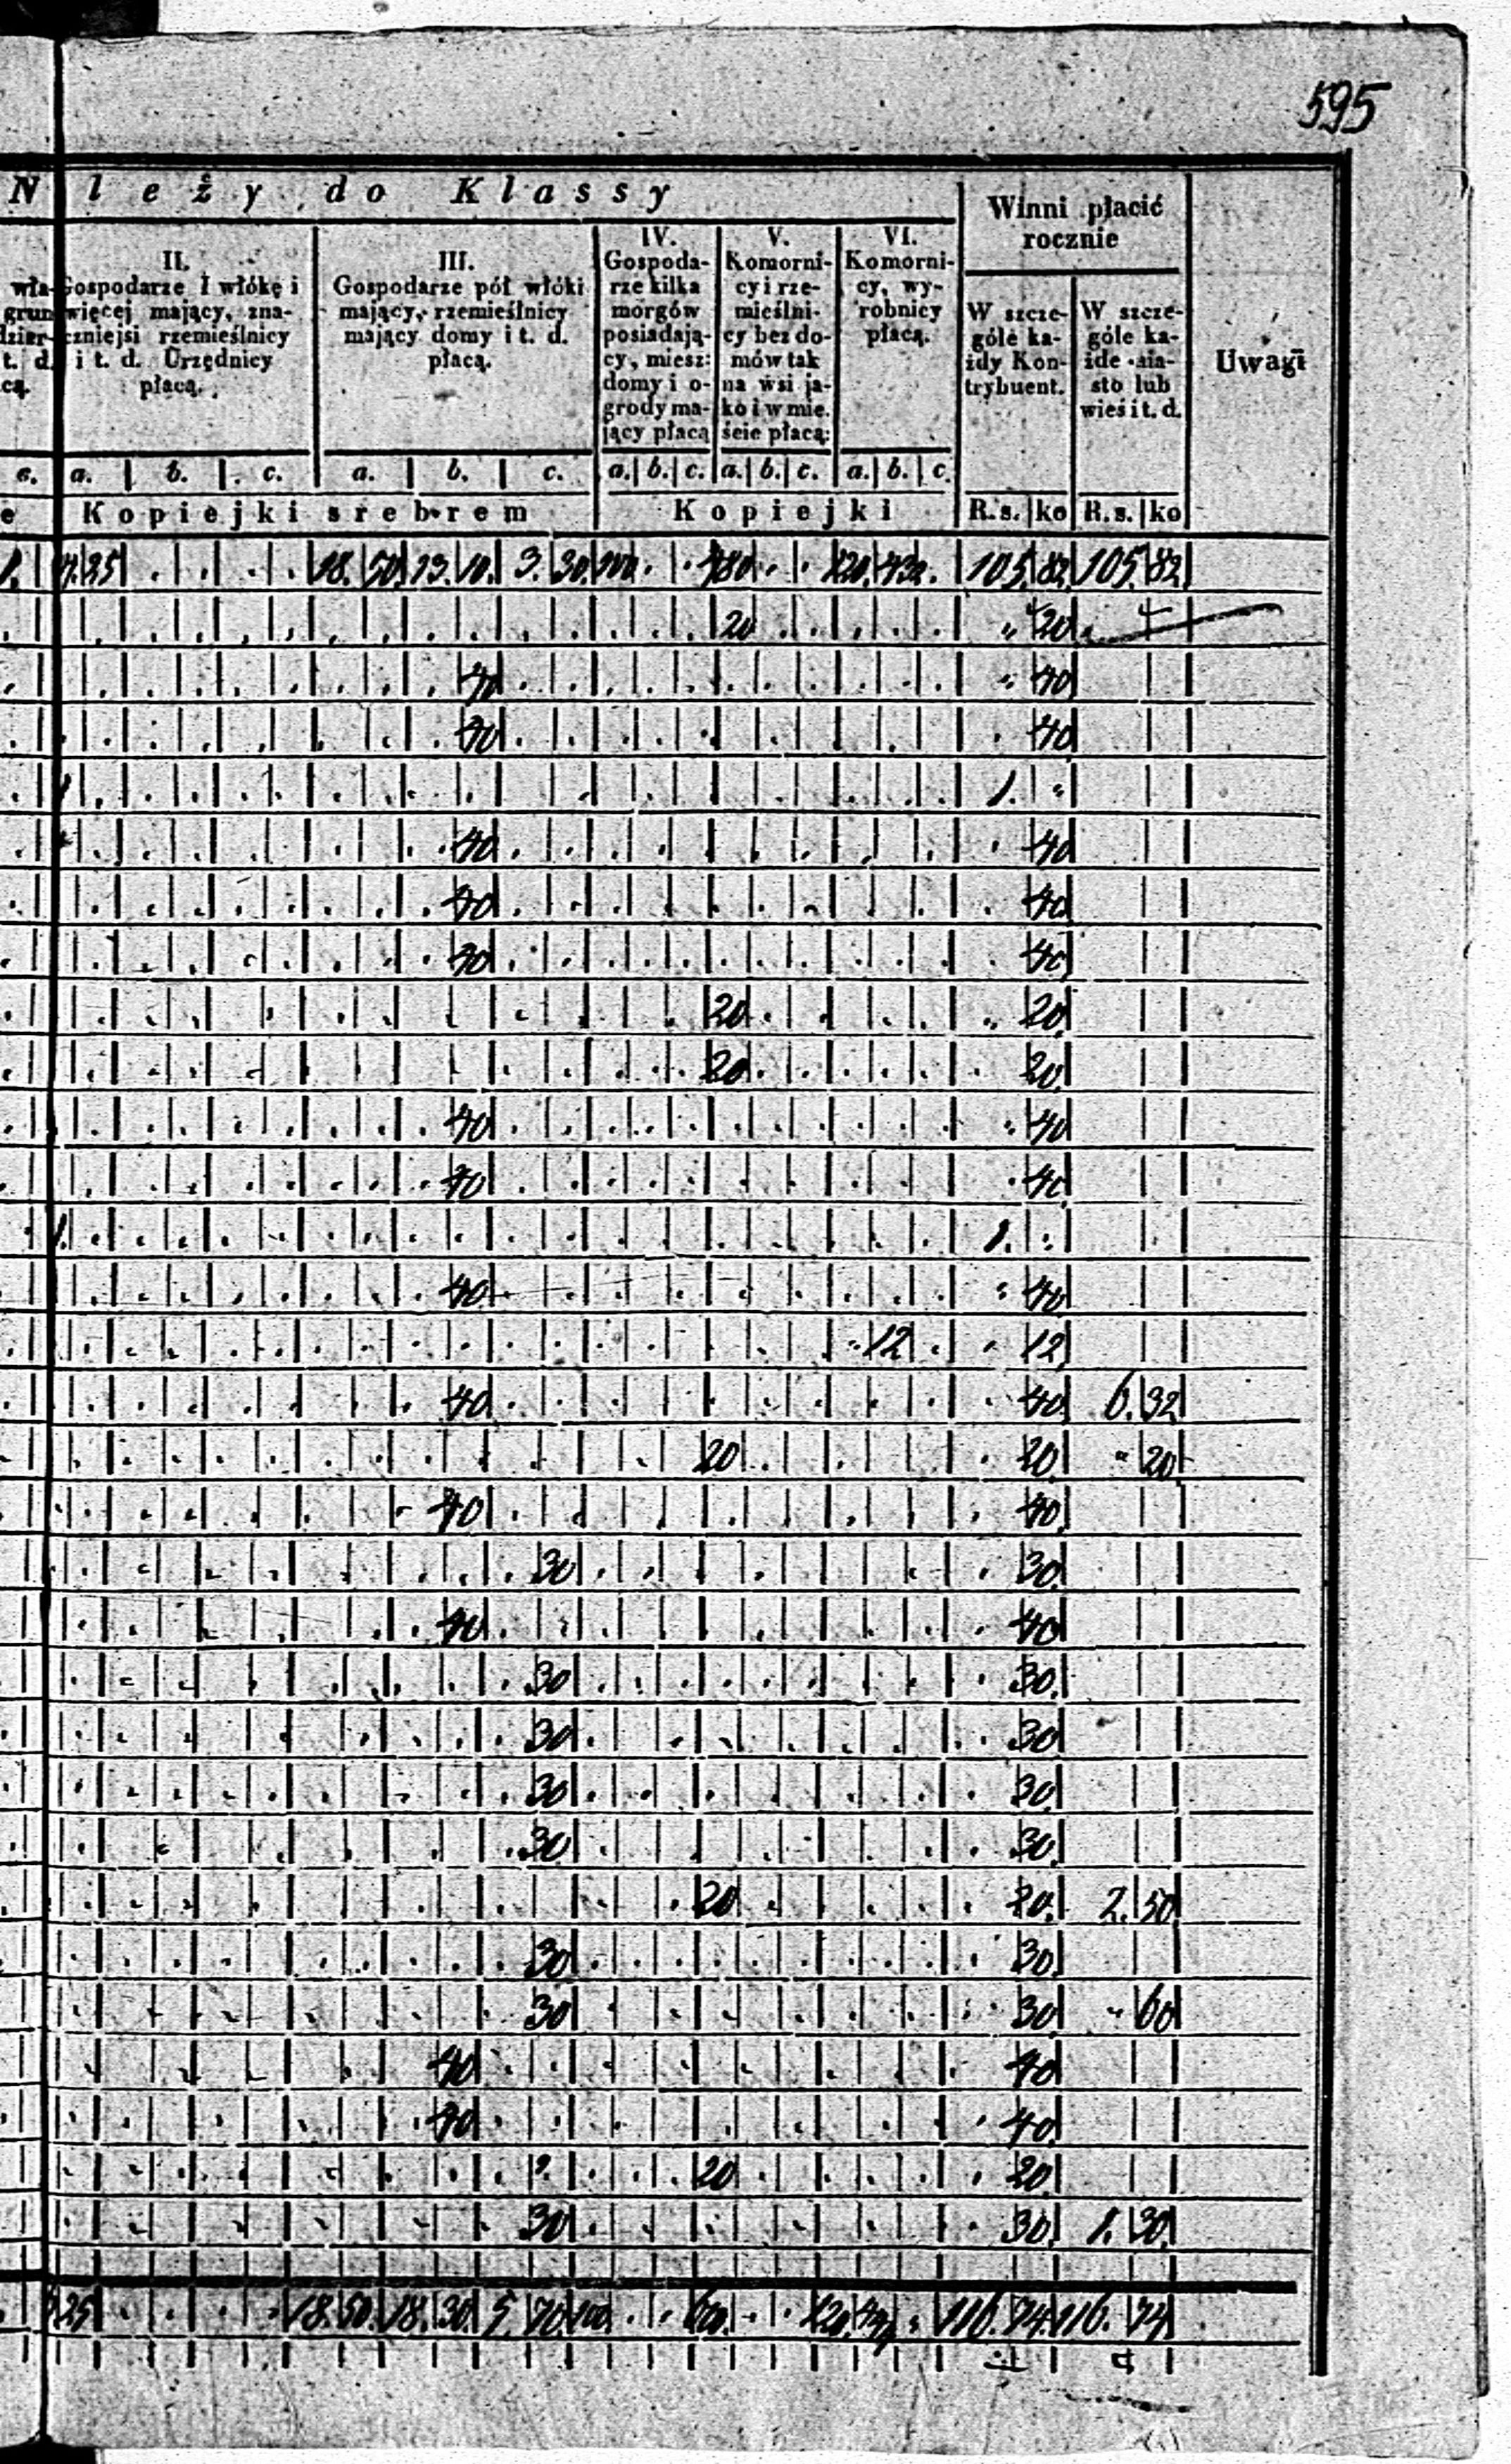 595
N leży do Klassy
Winni płacić rocznie
Uwagi
wła-
grun
dzier-
t. d.
cą.
II.
Gospodarze 1 włókę i
więcej mający, zna-
czniejsi rzemieślnicy
i t. d. Urzędnicy
płacą.
III.
Gospodarze pół włóki
mający, rzemieślnicy
mający domy i t. d.
płacą.
IV.
Gospoda-
rze kilka
morgów
posiadają-
cy, miesz:
domy i o-
grody ma-
jący płacą
V.
Komorni-
cy i rze-
mieślni-
cy bez do-
mów tak
na wsi ja-
ko i w mie.
ście płacą:
VI.
Komorni-
cy, wy-
robnicy
płacą.
W szcze-
góle ka-
żdy Kon-
trybuent.
W szcze-
góle ka-
żde mia-
sto lub
wieś i t. d.
a. b. c. a. b. c. a. b. c. a. b. c. a. b. c.
e Kopiejki srebrem Kopiejki R.s. ko R.s. ko
25 18. 50 13. 10. 3. 30. 480 120. 432. 105. 82 105. 82
20 20
40 40
40 40
1.
40 40
40 40
40 40
20 20
20 20
40 40
40 40
1. 1.
40 40
12 12
40 40 6. 32
20 20 20
40 40
30 30
40 40
30 30
30 30
30 30
30 30
20 20 2. 50
30 30
30 30 60
40 40
40 40
20 20
30 30 1. 30
25 18. 50. 18. 30 5. 70 100 600. 120. 116. 74. 116. 74